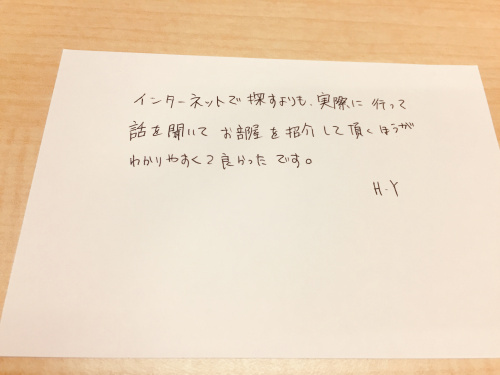 インターネットで探すよりも、実際に行って
話を聞いてお部屋を紹介して頂くほうが
わかりやすくて良かったです。
H.Y